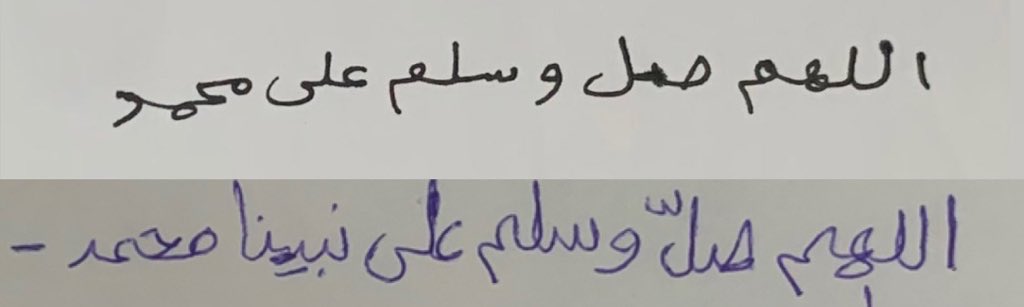 اللهم صل وسلم على محمد
اللهم صلّ وسلم على نبينا محمد -